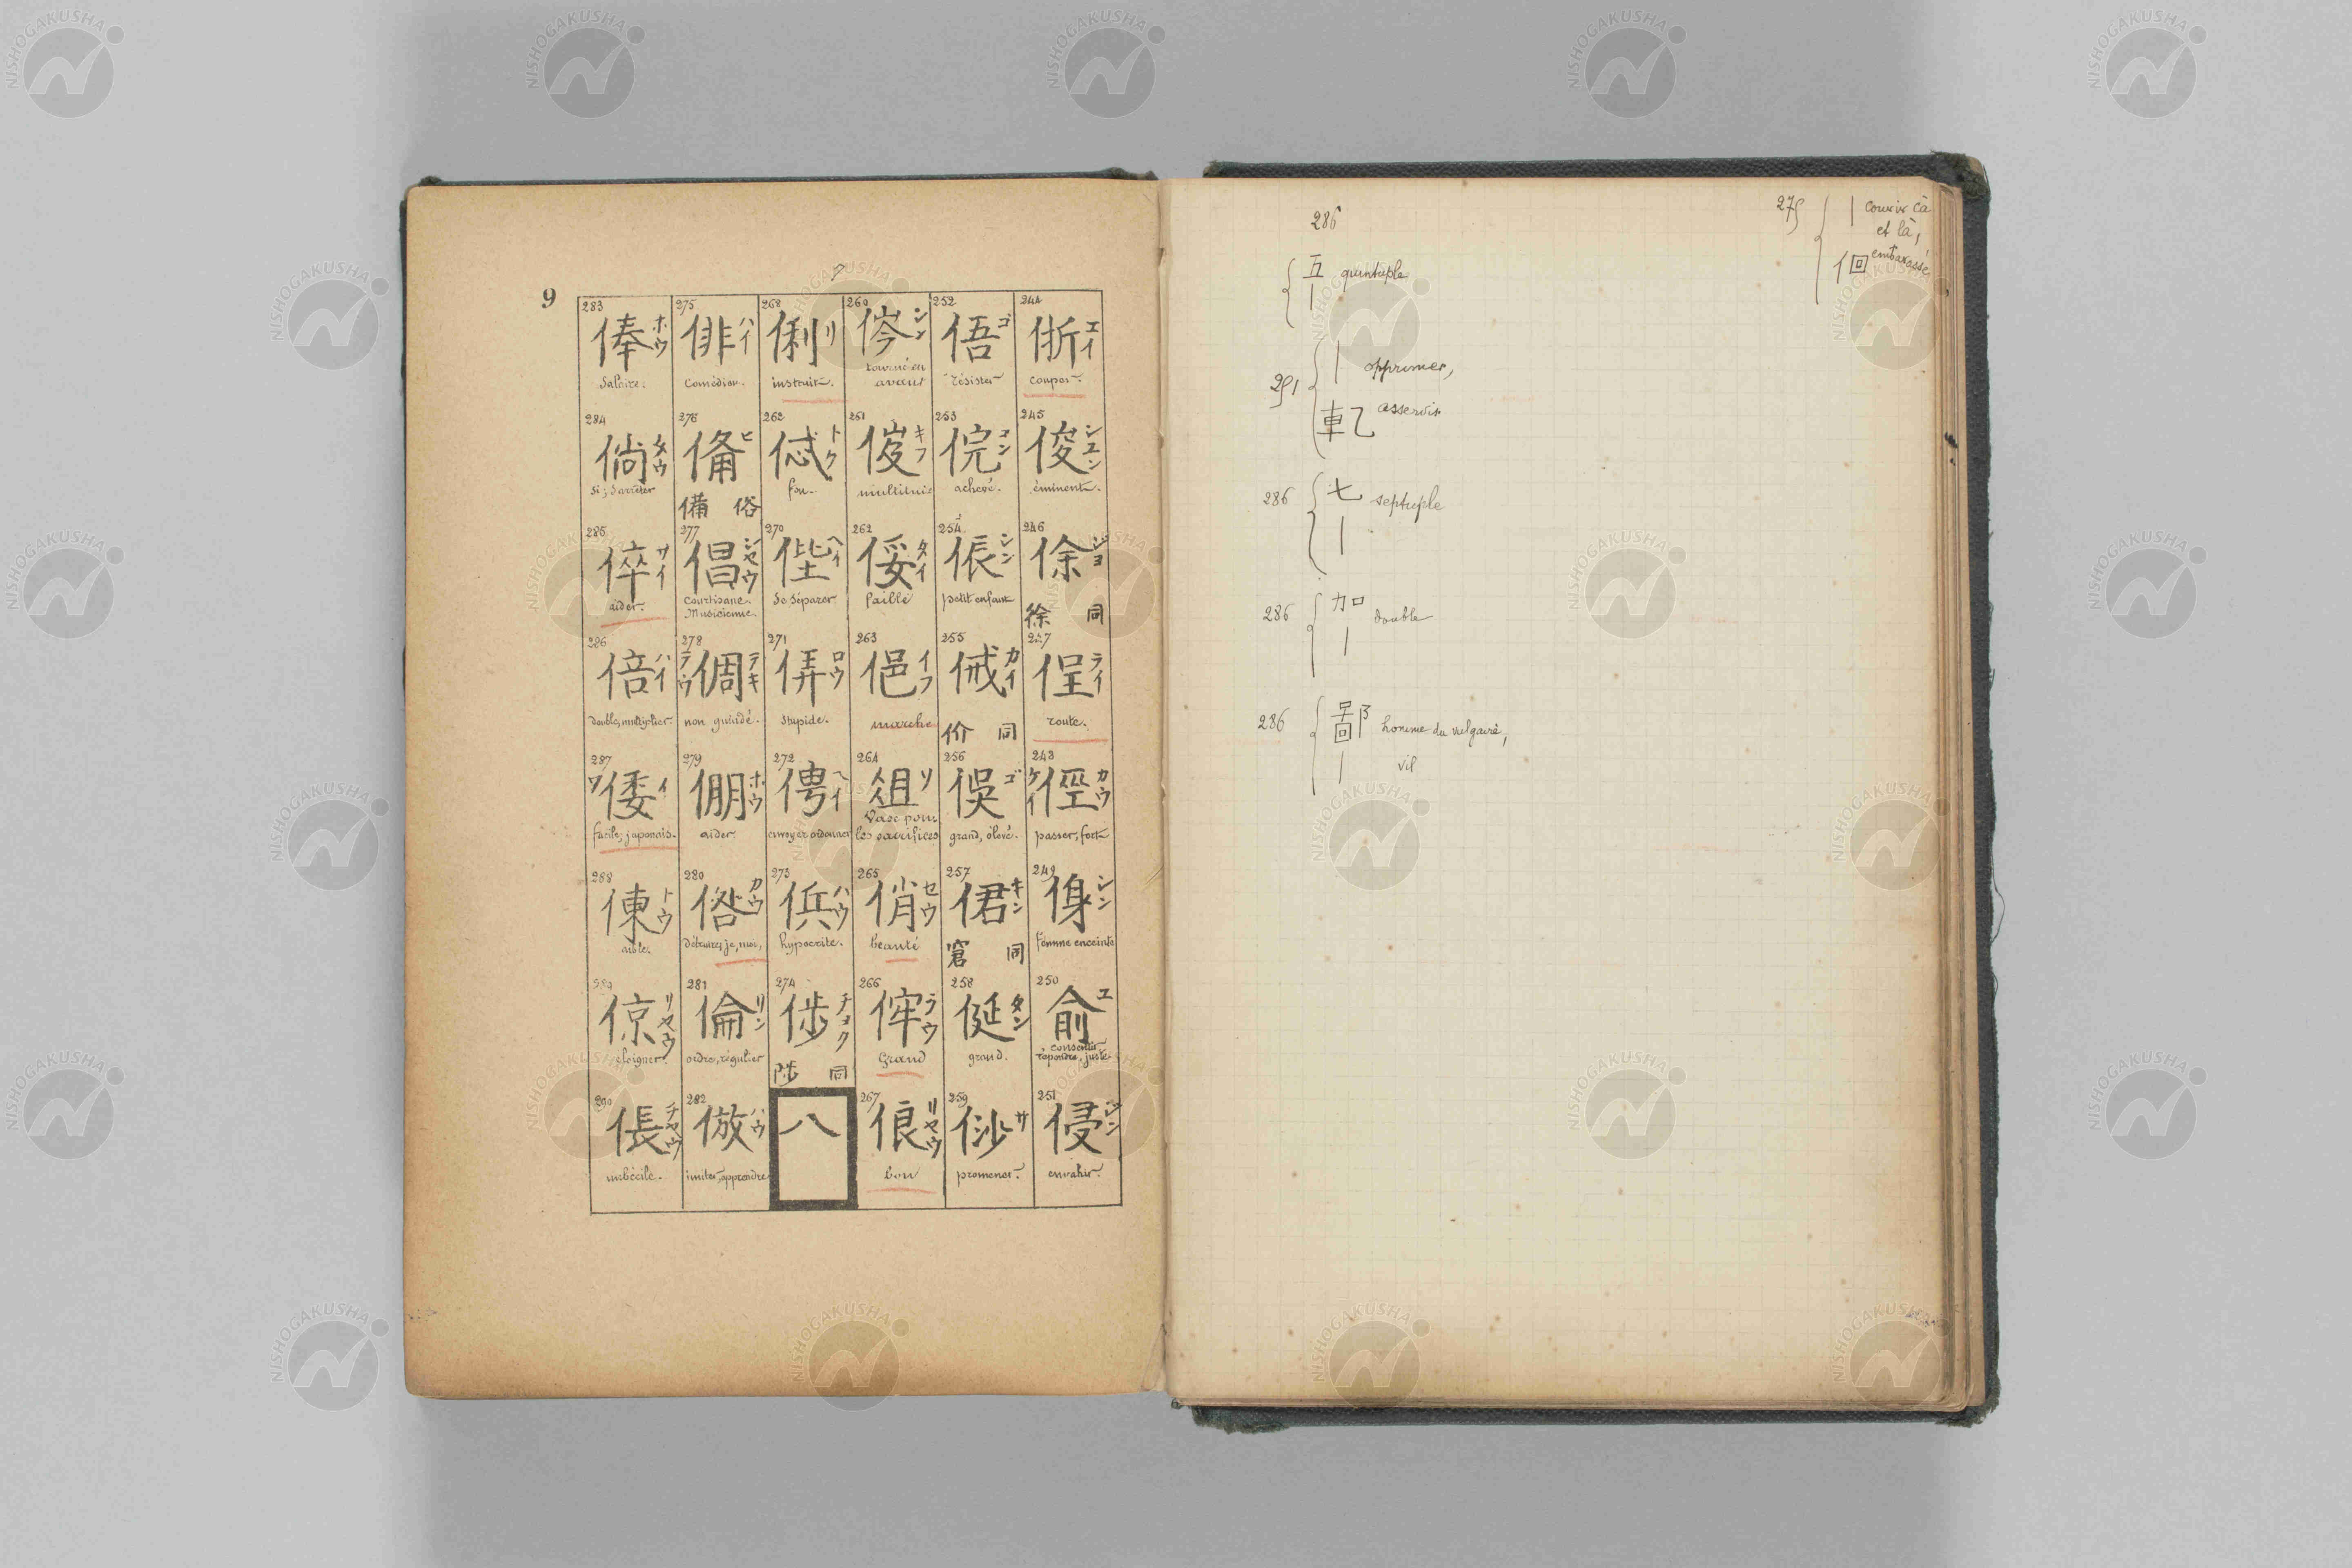 9
244
㑿 エイ
couper.
245
俊 シユン
éminent.
246
俆 ジヨ
徐 同
247
侱 テイ
route.
248
俓 カウ ケイ
passer, fort
249
㑗 シン
femme enceinte
250
兪 ユ
consentir
répondre, juste
251
侵 シン
envahir.
252
俉 ゴ
résister
253
俒 コン
achevé.
254
侲 シン
petit enfant
255
悈 カイ
价 同
256
俁 ゴ
grand, élevé.
257
侰 キン
窘 同
258
侹 タン
grand.
259
㑚 サ
promener.
260
tourné en
avant
261
キフ
262
俀 タイ
faible
263
俋 イフ
marche
264
俎 ソ
Vase pour
les sacrifices
265
俏 セウ
beauté
266
窂 ラウ
Grand
267
俍 リヤウ
bon
268
俐 リ
instruit.
トク
fou.
270
ヘイ
se séparer
271
挵 ロウ
stupide.
272
俜 ヘイ
envoyer, ordonner
273
俵 ハウ
hypocrite.
274
チヨク
陟 同
八
275
俳 ハイ
Comédien.
276
俻 ヒ
備 俗
277
倡 シヤウ
Courtisane.
Musicienne.
278
倜 テキ テウ
non guindé.
279
倗 ホウ
aider.
280
倃 カウ
détruire, je, moi,
281
倫 リン
ordre, régulier
282
倣 ハウ
imiter, apprendre
283
俸 ホウ
Salaire.
284
倘 タウ
si; s'arrêter
285
倅 サイ
aider.
286
倍 ハイ
double, multiplier
287
倭 イ ワ
facile; japonais.
288
倲 トウ
289
倞 リヤウ
éloigner.
290
倀 チヤウ
imbécile.
286
五 quintuple
|
291
| opprimer,
asservir
286
七 septuple
|
286
加 double
|
286
鄙 homme du vulgaire,
| vil
275
| courir çà
et là,
佪 embarassé